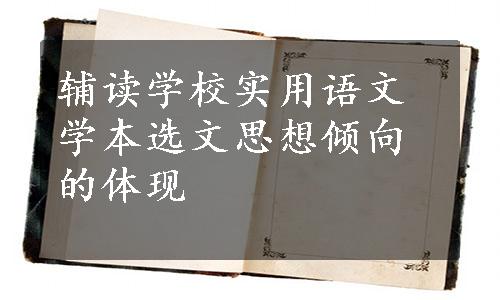 辅读学校实用语文
学本选文思想倾向
的体现